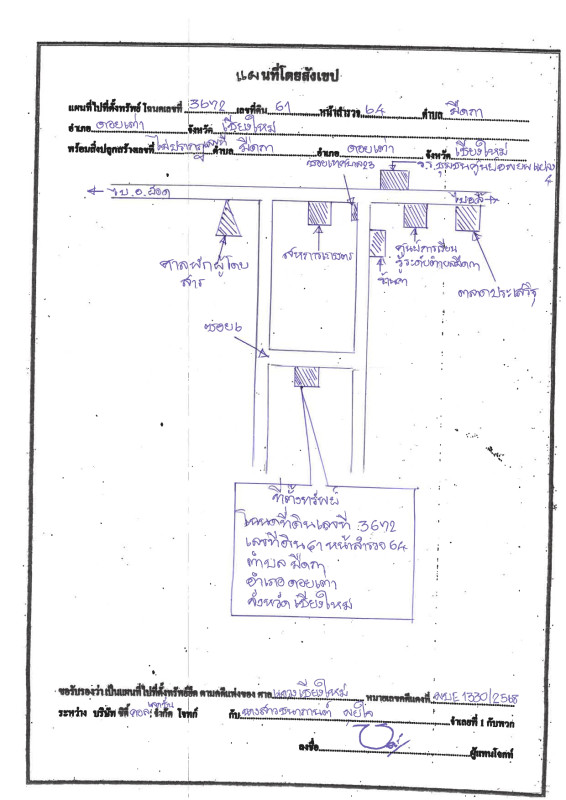 แผนที่โดยสังเขป
แผนที่ไปที่ตั้งทรัพย์ โฉนดเลขที่ 3672 เลขที่ดิน 61 หน้าสำรวจ 64 ตำบล มืดกา
อำเภอ ดอยเต่า จังหวัด เชียงใหม่
พร้อมสิ่งปลูกสร้างเลขที่ ไม่ปรากฏเลขที่ ตำบล มืดกา อำเภอ ดอยเต่า จังหวัด เชียงใหม่
ซอยเทศบาล23
4
ไป อ.ฮอด
ไป อ.ลี้
ศาลาพักผู้โดย
สาร
สหกรณ์การเกษตร
ร้านค้า
ศูนย์การเรียน
รู้ระดับตำบลมืดกา
ตลาดประเสริฐ
ซอย 6
ที่ตั้งทรัพย์
โฉนดที่ดินเลขที่ 3672
เลขที่ดิน 61 หน้าสำรวจ 64
ตำบล มืดกา
อำเภอ ดอยเต่า
จังหวัด เชียงใหม่
ขอรับรองว่าเป็นแผนที่ไปที่ตั้งทรัพย์ยึด ตามคดีแพ่งของ ศาล แขวงเชียงใหม่ หมายเลขคดีแดงที่ ผบE 1330/2568
ระหว่าง บริษัท ซิตี้ จำกัด โจทก์ กับ นางสาว จำเลยที่ 1 กับพวก
ลงชื่อ ผู้แทนโจทก์